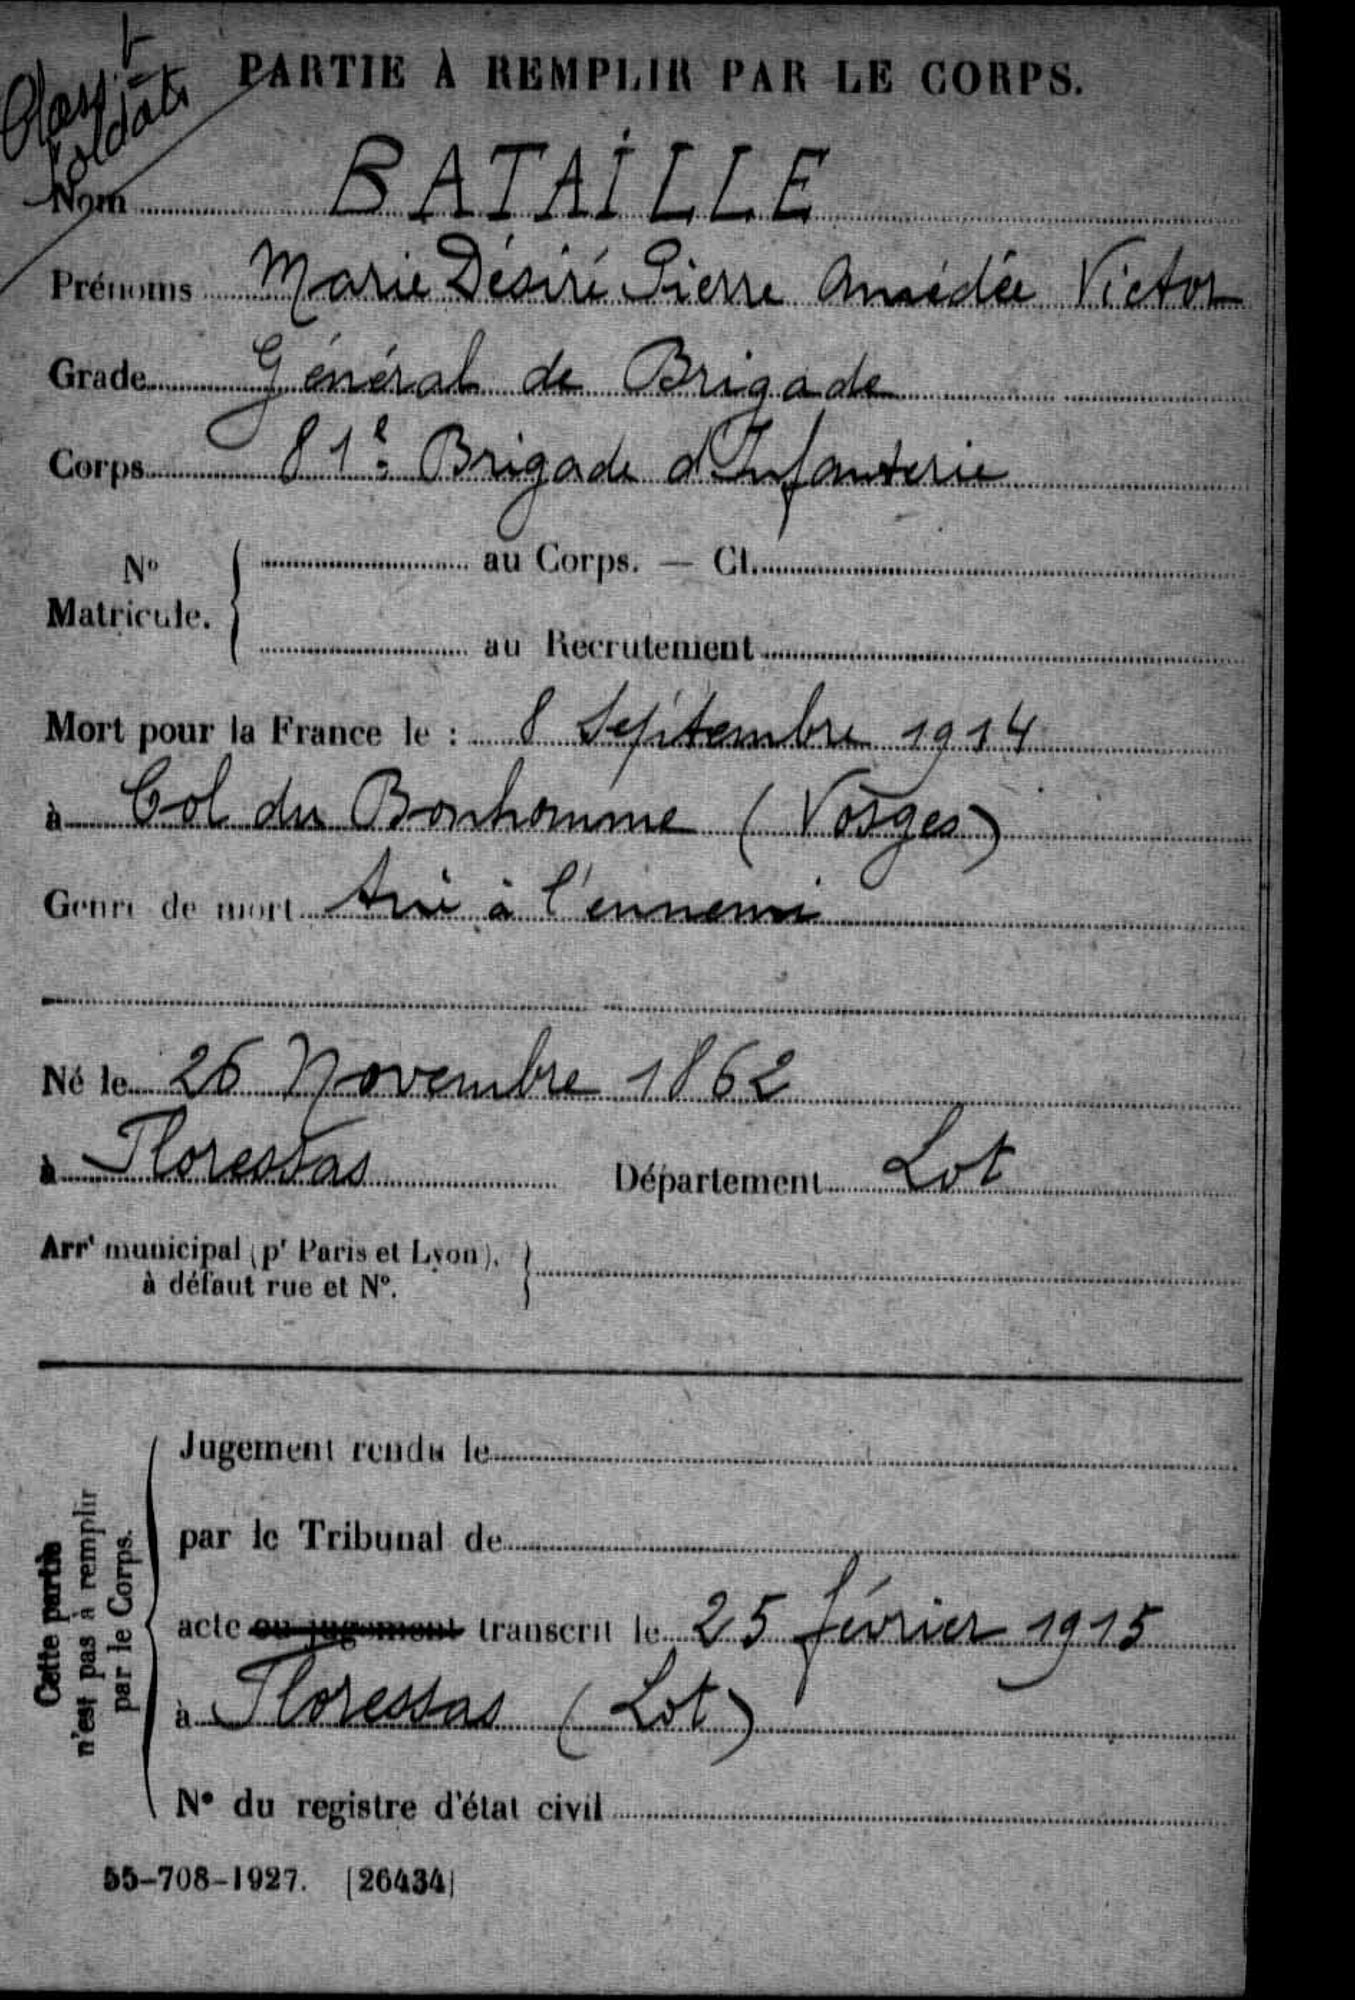 Class. t
soldats
PARTIE À REMPLIR PAR LE CORPS.
Nom BATAILLE
Prénoms Marie Désiré Pierre Amédée Victor
Grade Général de Brigade
Corps 81e Brigade d'Infanterie
N°
Matricule.
au Corps. — Cl.
au Recrutement
Mort pour la France le : 8 Septembre 1914
à Col du Bonhomme (Vosges)
Genre de mort tué à l'ennemi
Né le 26 Novembre 1862
à Floressas Département Lot
Arrt municipal (pr Paris et Lyon),
à défaut rue et N°.
Cette partie
n'est pas à remplir
par le Corps.
Jugement rendu le
par le Tribunal de
acte ou jugement transcrit le 25 février 1915
à Floressas (Lot)
N° du registre d'état civil
55-708-1927. [26434]